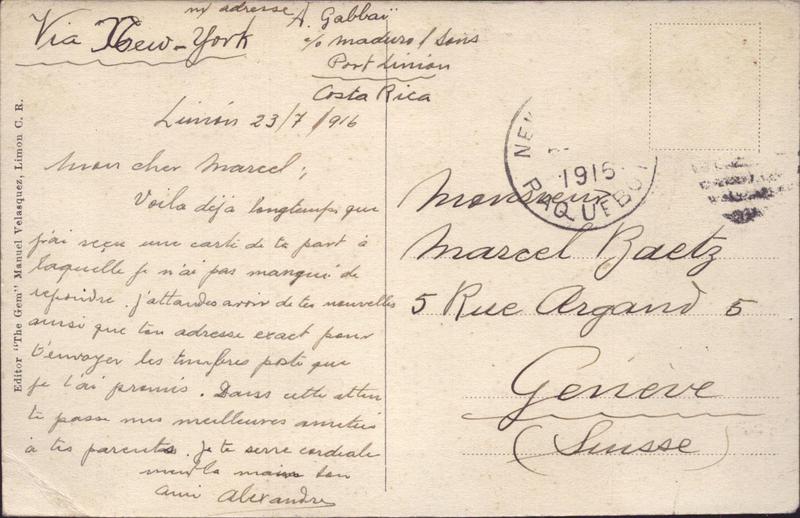 Via New-York
m/ adresse A. Gabbaï
c/o Maduro / Sons
Port Limon
Costa Rica
Limón 23/7/916
Mon cher Marcel,
Voila déjà longtemps que
j'ai reçu une carte de ta part à
laquelle je n'ai pas manqué de
repondre. J'attandes avoir de tes nouvelles
ainsi que ton adresse exact pour
t'envoyer les timbres poste que
je t'ai promis. Dans cette atten
te passe mes meilleures amitiés
à tes parents. Je te serre cordiale
ment la main ton
ami Alexandre
Editor "The Gem" Manuel Velasquez, Limon C. R.
NEW
1916
PAQUEBOT
Monsieur
Marcel Baetz
5 Rue Argand 5
Genève
(Suisse)